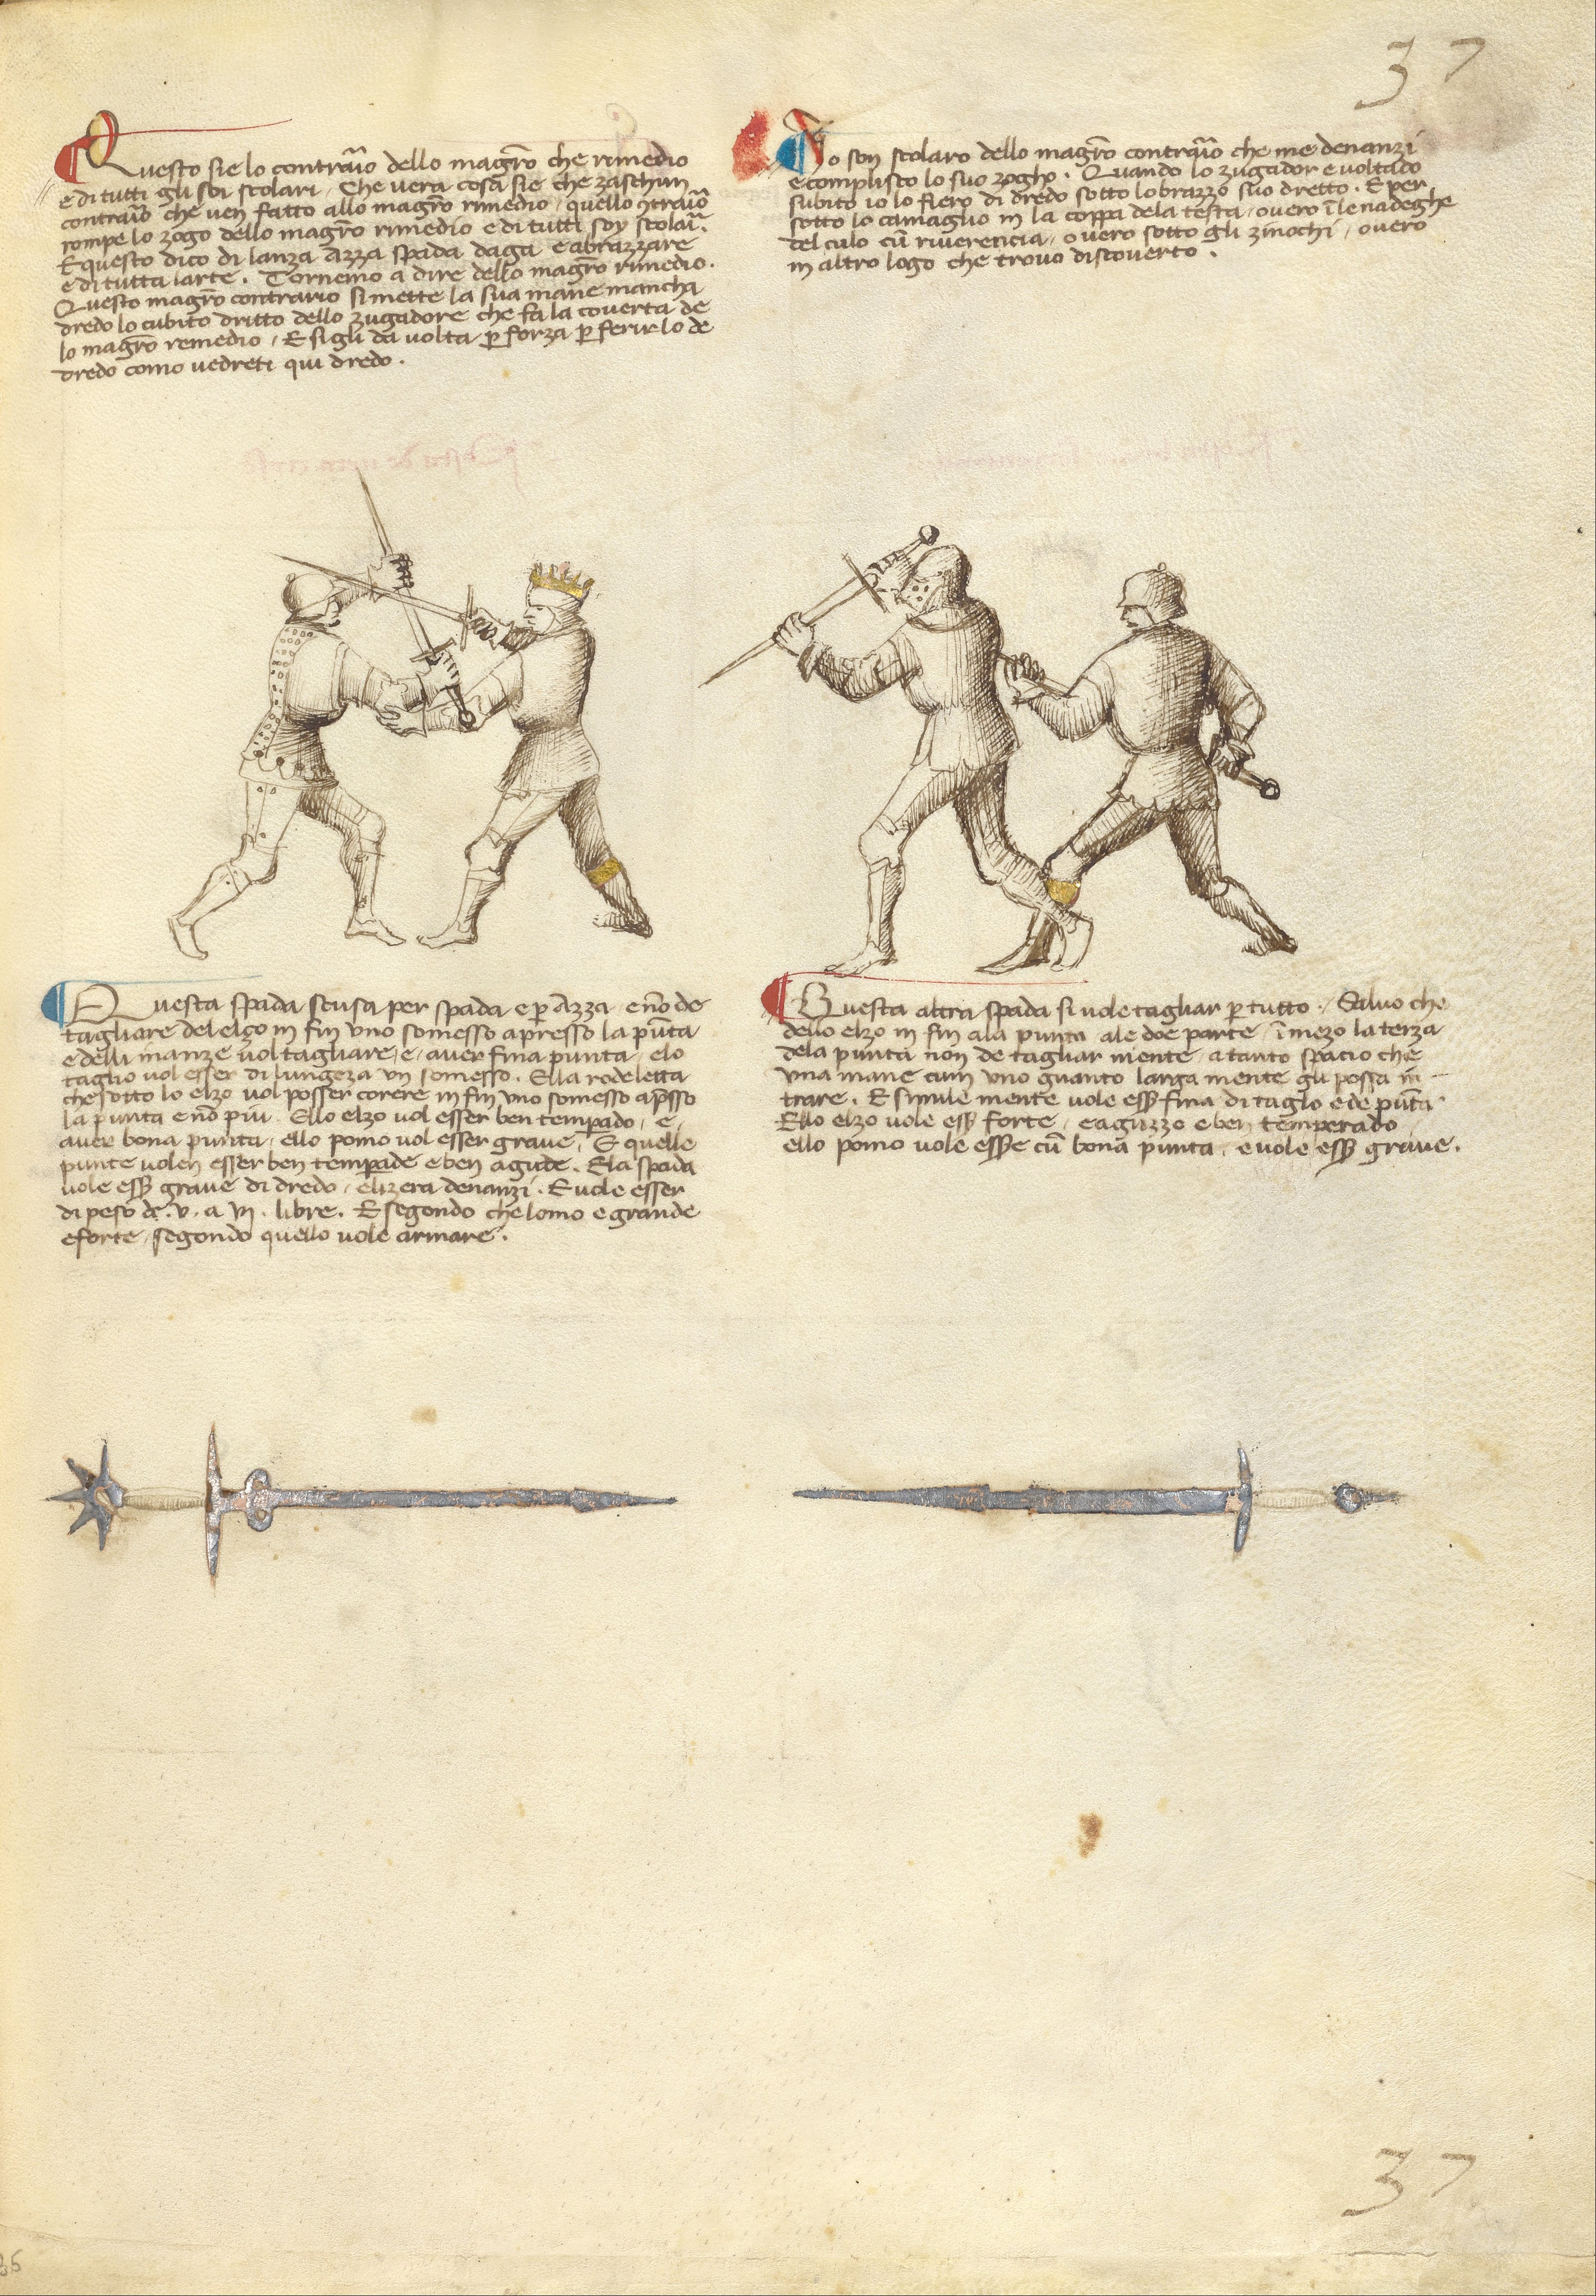 37
Questo sie lo contraꝛ̃io dello magr̃o che rimedio
e di tutti gli soi scolari. Che vera cosa sie che zaschun
contraꝛ̃io che ven fatto allo magr̃o rimedio, quello ꝯtraꝛ̃io
rompe lo zogo dello magr̃o rimedio e di tutti soy scolaꝛ̃.
E questo dico di lanza Azza spada daga e abrazzare
e di tutta larte. Tornemo a dire dello magr̃o rimedio.
Questo magr̃o contrario si mette la sua mane mancha
dredo lo cubito dritto dello zugadore che fa la coverta de
lo magr̃o remedio, E sigli dà volta ꝑ forza ꝑ ferirlo de
dredo como vedreti qui dredo.
Io son scolaro dello magr̃o contraꝛ̃io che me denanzi
e complisco lo suo zogho. Quando lo zugador e voltado
subito io lo fiero di dredo sotto lo brazzo suo dretto. E per
sotto lo camaglio in la coppa dela testa, overo ĩ le nadeghe
del culo cũ riverencia, overo sotto gli zinochi, overo
in altro logo che trovo discoverto.
Questa spada scusa per spada e ꝑ Azza e nõ de
tagliare del elzo in fin uno somesso apresso la pũta
e delli inanze vol tagliare, e, aver fina punta, e lo
taglio vol esser di lungeza un somesso. Ella rodeletta
che sotto lo elzo vol posser corere in fin uno somesso apsso
la punta e nõ piu. Ello elzo vol esser ben temperado, e
aver bona punta, ello pomo vol esser grave, E quelle
punte volen esser ben temperade e ben agude. Ela spada
vole esß grave di dredo, elizera denanzi. E vole esser
di peso de .v. a vıj. libre. E segondo che lomo e grande
e forte, segondo quello vole armare.
Questa altra spada si vole tagliar ꝑ tutto. Salvo che
dello elzo in fin ala punta ale doe parte, ĩ mezo la terza
dela punta non de tagliar niente, a tanto spacio che
una mane cum uno guanto larga mente gli possa in-
trare. E simile mente vole esß fina di taglo e de pũta.
Ello elzo vole esß forte, e aguzzo e ben temperado
ello pomo vole esße cũ bona punta, e vole esß grave.
37